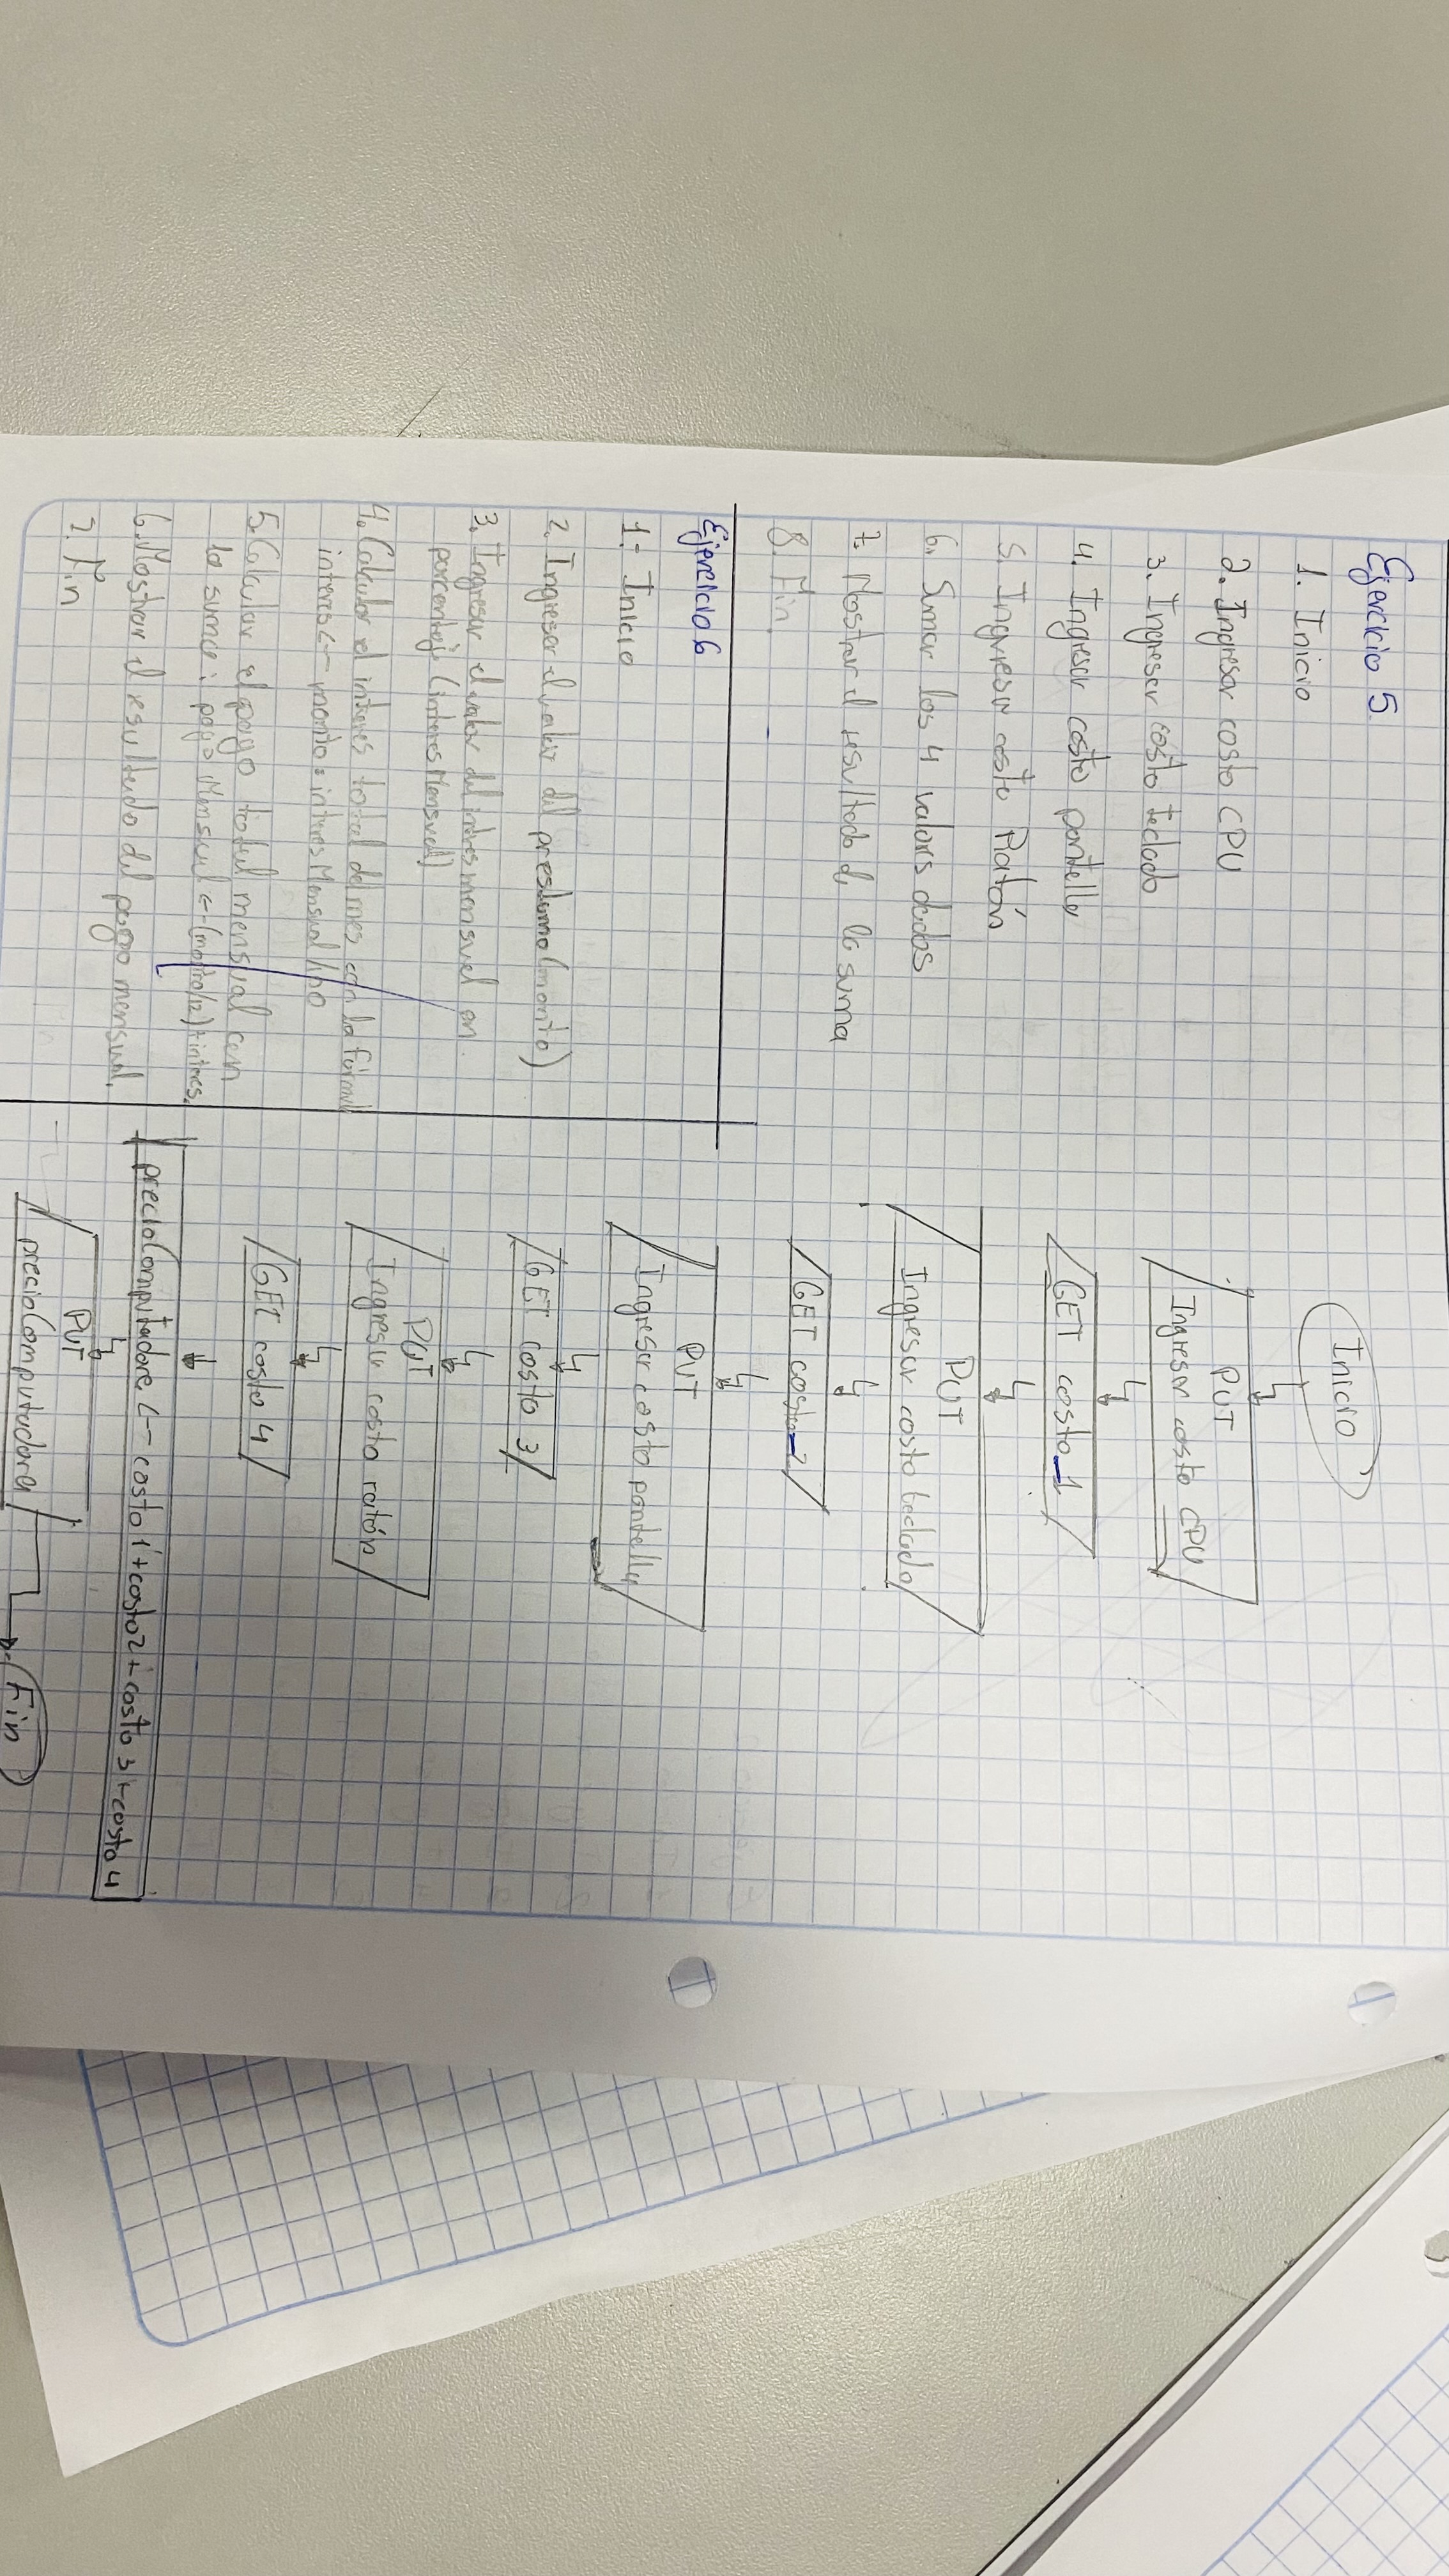 Ejercicio 5.
1. Inicio
2. Ingresar costo CPU
3. Ingresar costo teclado
4. Ingresar costo pantalla
5. Ingresar costo Ratón
6. Sumar los 4 valors dados
7. Mostrar el resultado de la suma
8. Fin.
Ejercicio 6
1.- Inicio
2. Ingresar el valor del prestamo (monto)
3. Ingresar el valor del interes mensual en
porcentaje (interesMensual)
4. Calcular el interes total del mes con la formula
interes <- monto * interesMensual / 100
5. Calcular el pago total mensual con
la suma: pagoMensual <- (monto/12) + interes.
6. Mostrar el resultado del pago mensual.
7. Fin
Inicio
PUT
Ingresar costo CPU
GET costo_1
PUT
Ingresar costo teclado
GET costo_2
PUT
Ingresar costo pantalla
GET costo 3
PUT
Ingresar costo ratón
GET costo 4
precioComputadora <- costo 1 + costo 2 + costo 3 + costo 4
PUT
precioComputadora
Fin